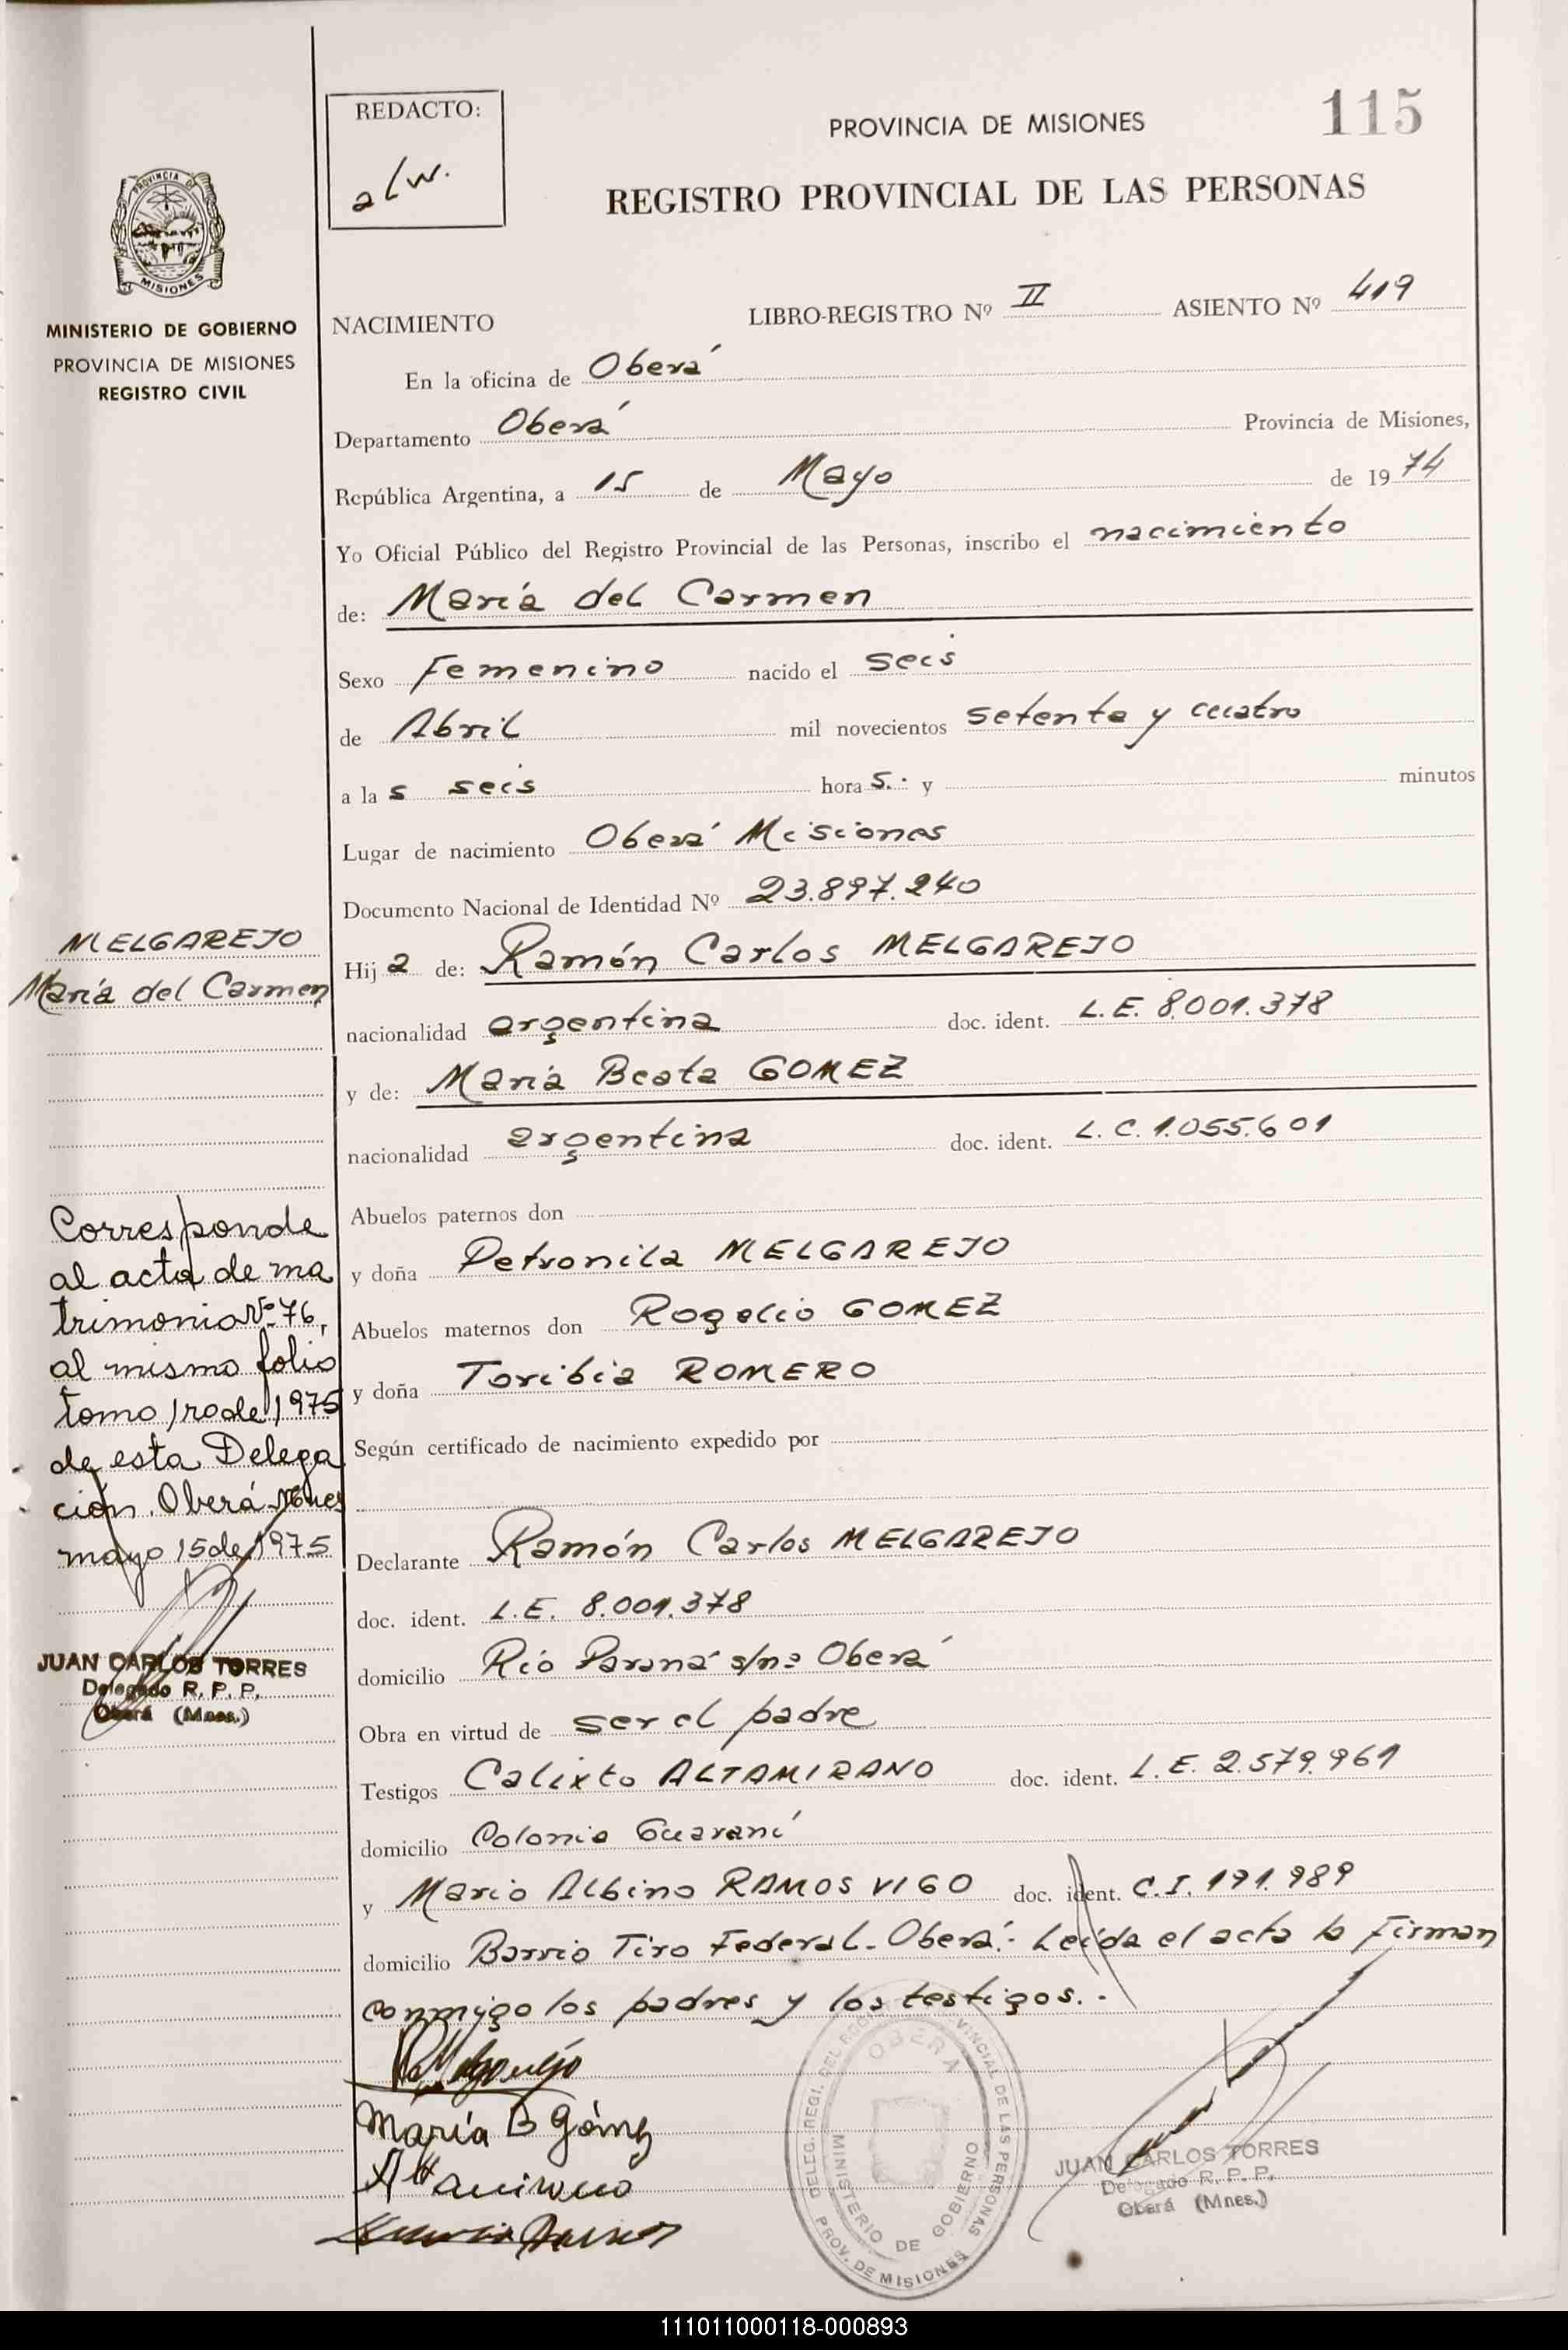 REDACTO:
a/w.
PROVINCIA DE MISIONES
115
REGISTRO PROVINCIAL DE LAS PERSONAS
PROVINCIA DE
MISIONES
MINISTERIO DE GOBIERNO
PROVINCIA DE MISIONES
REGISTRO CIVIL
NACIMIENTO LIBRO-REGISTRO Nº II ASIENTO Nº 419
En la oficina de Oberá
Departamento Oberá Provincia de Misiones,
República Argentina, a 15 de Mayo de 1974
Yo Oficial Público del Registro Provincial de las Personas, inscribo el nacimiento
de: María del Carmen
Sexo Femenino nacido el seis
de Abril mil novecientos setenta y cuatro
a las seis horas.- y minutos
Lugar de nacimiento Oberá Misiones
Documento Nacional de Identidad Nº 23.897.240
MELGAREJO
María del Carmen
Hija de: Ramón Carlos MELGAREJO
nacionalidad argentina doc. ident. L.E. 8.001.378
y de: María Beata GOMEZ
nacionalidad argentina doc. ident. L.C. 1.055.601
Abuelos paternos don
y doña Petronila MELGAREJO
Abuelos maternos don Rogelio GOMEZ
y doña Toribia ROMERO
Según certificado de nacimiento expedido por
Corresponde
al acta de ma
trimonio Nº 76,
al mismo folio
tomo 1ro de 1975
de esta Delega
ción. Oberá Mnes
mayo 15 de 1975
JUAN CARLOS TORRES
Delegado R. P. P.
Oberá (Mnes.)
Declarante Ramón Carlos MELGAREJO
doc. ident. L.E. 8.001.378
domicilio Río Paraná s/nº Oberá
Obra en virtud de ser el padre
Testigos Calixto ALTAMIRANO doc. ident. L.E. 2.579.961
domicilio Colonia Guaraní
y Mario Albino RAMOS VIGO doc. ident. C.I. 191.989
domicilio Barrio Tiro Federal-Oberá.- Leída el acta la Firman
conmigo los padres y los testigos.-
María B Gómez
OBERA
MINISTERIO DE GOBIERNO
PROV. DE MISIONES
JUAN CARLOS TORRES
Delegado R. P. P.
Oberá (Mnes.)
111011000118-000893